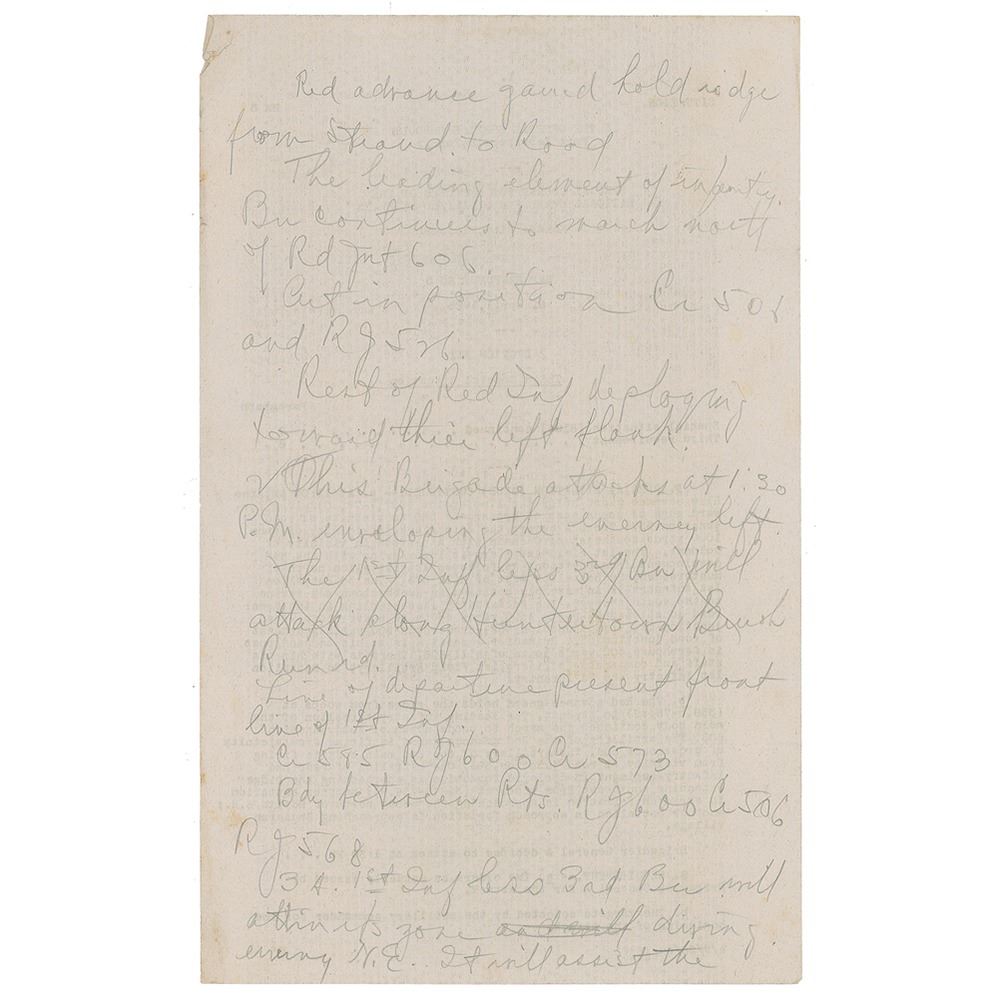 Red advance gained hold ridge
from Strand to Road
The leading element of infantry
Bn continues to march north
of Rd Jnt 606.
in position Cr 501
and RJ 526.
Rest of Red Inf deploying
toward thier left flank.
2 This Brigade attacks at 1:30
P.M. enveloping the enemey left.
The 1st Inf less 3rd Bn will
attack along Huntertown Brush
Run rd.
Line of departure present front
line of 1st Inf.
Cr 585 RJ 600 Cr 573
Bdy between Rts. RJ 600 Cr 506
RJ 568
3 A. 1st Inf less 3rd Bn will
att in its zone and will driving
enemy N.E. It will assist the